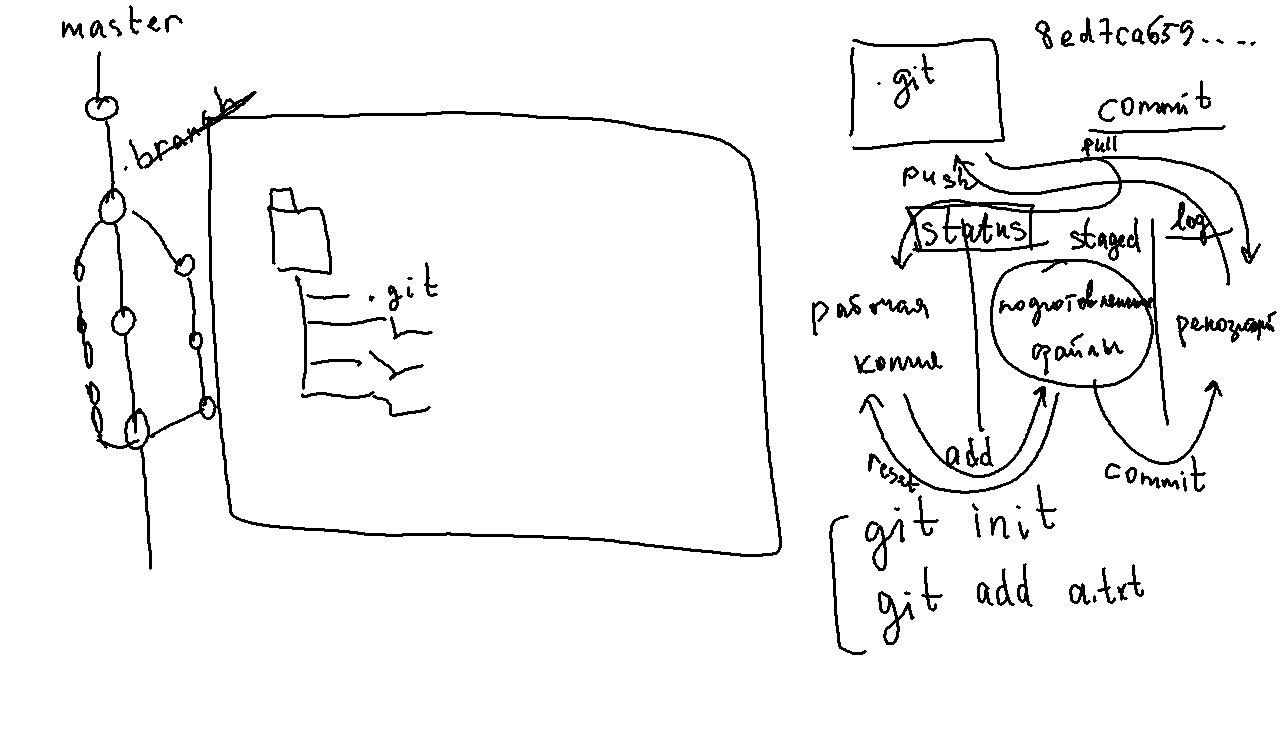 master
.branch
.git
.git
8ed7ca659.....
commit
pull
push
status
staged
log
рабочая
копие
подготовленные
файлы
репозиторий
add
reset
commit
git init
git add a.txt